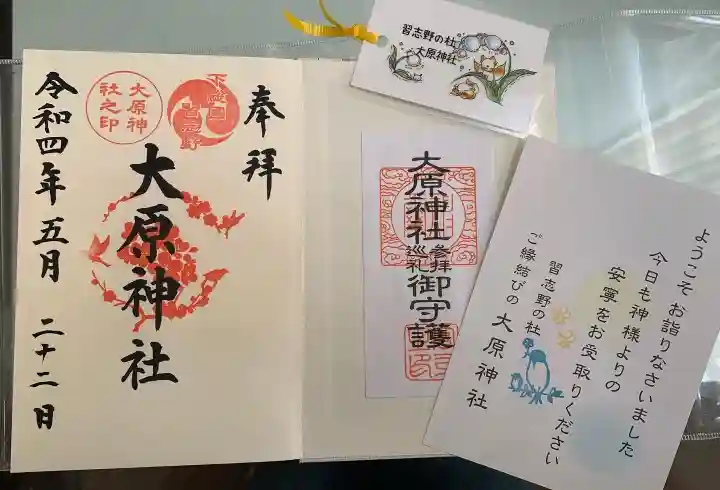 奉拝
下総国
習志野
大原神
社之印
大原神社
令和四年五月二十二日
習志野の杜
大原神社
大原神社
参拝
巡礼
御守護
ようこそお詣りなさいました
今日も神様よりの
安寧をお受取りください
習志野の杜
ご縁結びの大原神社